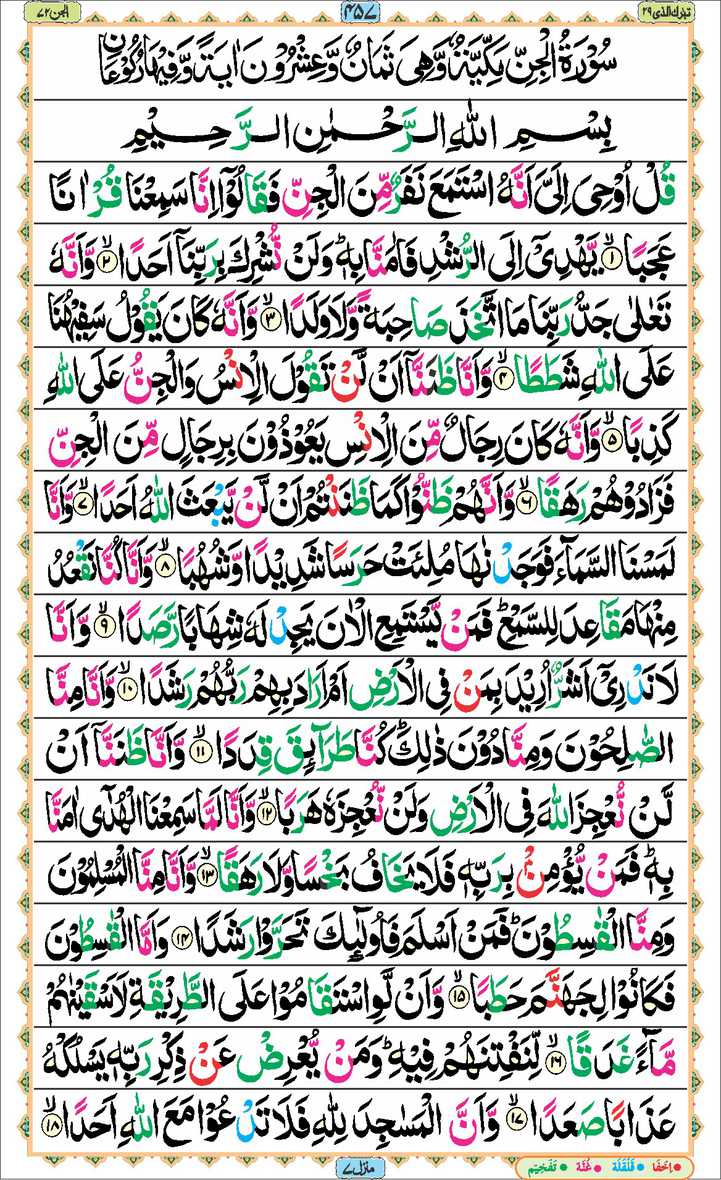 تبٰرك الذی ۲۹
۴۵۷
الجن ۷۲
سُوْرَةُ الْجِنِّ مَكِّيَّةٌ وَّهِيَ ثَمَانٌ وَّعِشْرُوْنَ اٰيَةً وَّفِيْهَا رُكُوْعَانِ
بِسْمِ اللّٰهِ الرَّحْمٰنِ الرَّحِيْمِ
قُلْ اُوْحِىَ اِلَىَّ اَنَّهُ اسْتَمَعَ نَفَرٌ مِّنَ الْجِنِّ فَقَالُوْۤا اِنَّا سَمِعْنَا قُرْاٰنًا
عَجَبًا ۙ‏﴿۱﴾ يَّهْدِىْۤ اِلَى الرُّشْدِ فَاٰمَنَّا بِهٖ‌ؕ وَلَنْ نُّشْرِكَ بِرَبِّنَاۤ اَحَدًا ۙ‏﴿۲﴾ وَّاَنَّهٗ
تَعٰلٰى جَدُّ رَبِّنَا مَا اتَّخَذَ صَاحِبَةً وَّلَا وَلَدًا ۙ‏﴿۳﴾ وَّاَنَّهٗ كَانَ يَقُوْلُ سَفِيْهُنَا
عَلَى اللّٰهِ شَطَطًا ۙ‏﴿۴﴾ وَّاَنَّا ظَنَنَّاۤ اَنْ لَّنْ تَقُوْلَ الْاِنْسُ وَالْجِنُّ عَلَى اللّٰهِ
كَذِبًا ۙ‏﴿۵﴾ وَّاَنَّهٗ كَانَ رِجَالٌ مِّنَ الْاِنْسِ يَعُوْذُوْنَ بِرِجَالٍ مِّنَ الْجِنِّ
فَزَادُوْهُمْ رَهَقًا ۙ‏﴿۶﴾ وَّاَنَّهُمْ ظَنُّوْا كَمَا ظَنَنْتُمْ اَنْ لَّنْ يَّبْعَثَ اللّٰهُ اَحَدًا ۙ‏﴿۷﴾ وَّاَنَّا
لَمَسْنَا السَّمَآءَ فَوَجَدْنٰهَا مُلِئَتْ حَرَسًا شَدِيْدًا وَّشُهُبًا ۙ‏﴿۸﴾ وَّاَنَّا كُنَّا نَقْعُدُ
مِنْهَا مَقَاعِدَ لِلسَّمْعِ‌ؕ فَمَنْ يَّسْتَمِعِ الْاٰنَ يَجِدْ لَهٗ شِهَابًا رَّصَدًا ۙ‏﴿۹﴾ وَّاَنَّا
لَا نَدْرِىْۤ اَشَرٌّ اُرِيْدَ بِمَنْ فِى الْاَرْضِ اَمْ اَرَادَ بِهِمْ رَبُّهُمْ رَشَدًا ۙ‏﴿۱۰﴾ وَّاَنَّا مِنَّا
الصّٰلِحُوْنَ وَمِنَّا دُوْنَ ذٰلِكَ‌ؕ كُنَّا طَرَآئِقَ قِدَدًا ۙ‏﴿۱۱﴾ وَّاَنَّا ظَنَنَّاۤ اَنْ
لَّنْ نُّعْجِزَ اللّٰهَ فِى الْاَرْضِ وَلَنْ نُّعْجِزَهٗ هَرَبًا ۙ‏﴿۱۲﴾ وَّاَنَّا لَمَّا سَمِعْنَا الْهُدٰٓى اٰمَنَّا
بِهٖ‌ؕ فَمَنْ يُّؤْمِنْۢ بِرَبِّهٖ فَلَا يَخَافُ بَخْسًا وَّلَا رَهَقًا ۙ‏﴿۱۳﴾ وَّاَنَّا مِنَّا الْمُسْلِمُوْنَ
وَمِنَّا الْقٰسِطُوْنَ‌ؕ فَمَنْ اَسْلَمَ فَاُولٰٓئِكَ تَحَرَّوْا رَشَدًا‏﴿۱۴﴾ وَاَمَّا الْقٰسِطُوْنَ
فَكَانُوْا لِجَهَنَّمَ حَطَبًا ۙ‏﴿۱۵﴾ وَّاَنْ لَّوِ اسْتَقَامُوْا عَلَى الطَّرِيْقَةِ لَاَسْقَيْنٰهُمْ
مَّآءً غَدَقًا ۙ‏﴿۱۶﴾ لِّنَفْتِنَهُمْ فِيْهِ‌ؕ وَمَنْ يُّعْرِضْ عَنْ ذِكْرِ رَبِّهٖ يَسْلُكْهُ
عَذَابًا صَعَدًا ۙ‏﴿۱۷﴾ وَّاَنَّ الْمَسٰجِدَ لِلّٰهِ فَلَا تَدْعُوْا مَعَ اللّٰهِ اَحَدًا ۙ‏﴿۱۸﴾
منزل ۷
اِخفَا • قَلقَلَه • غُنَّه • تَفخِيم